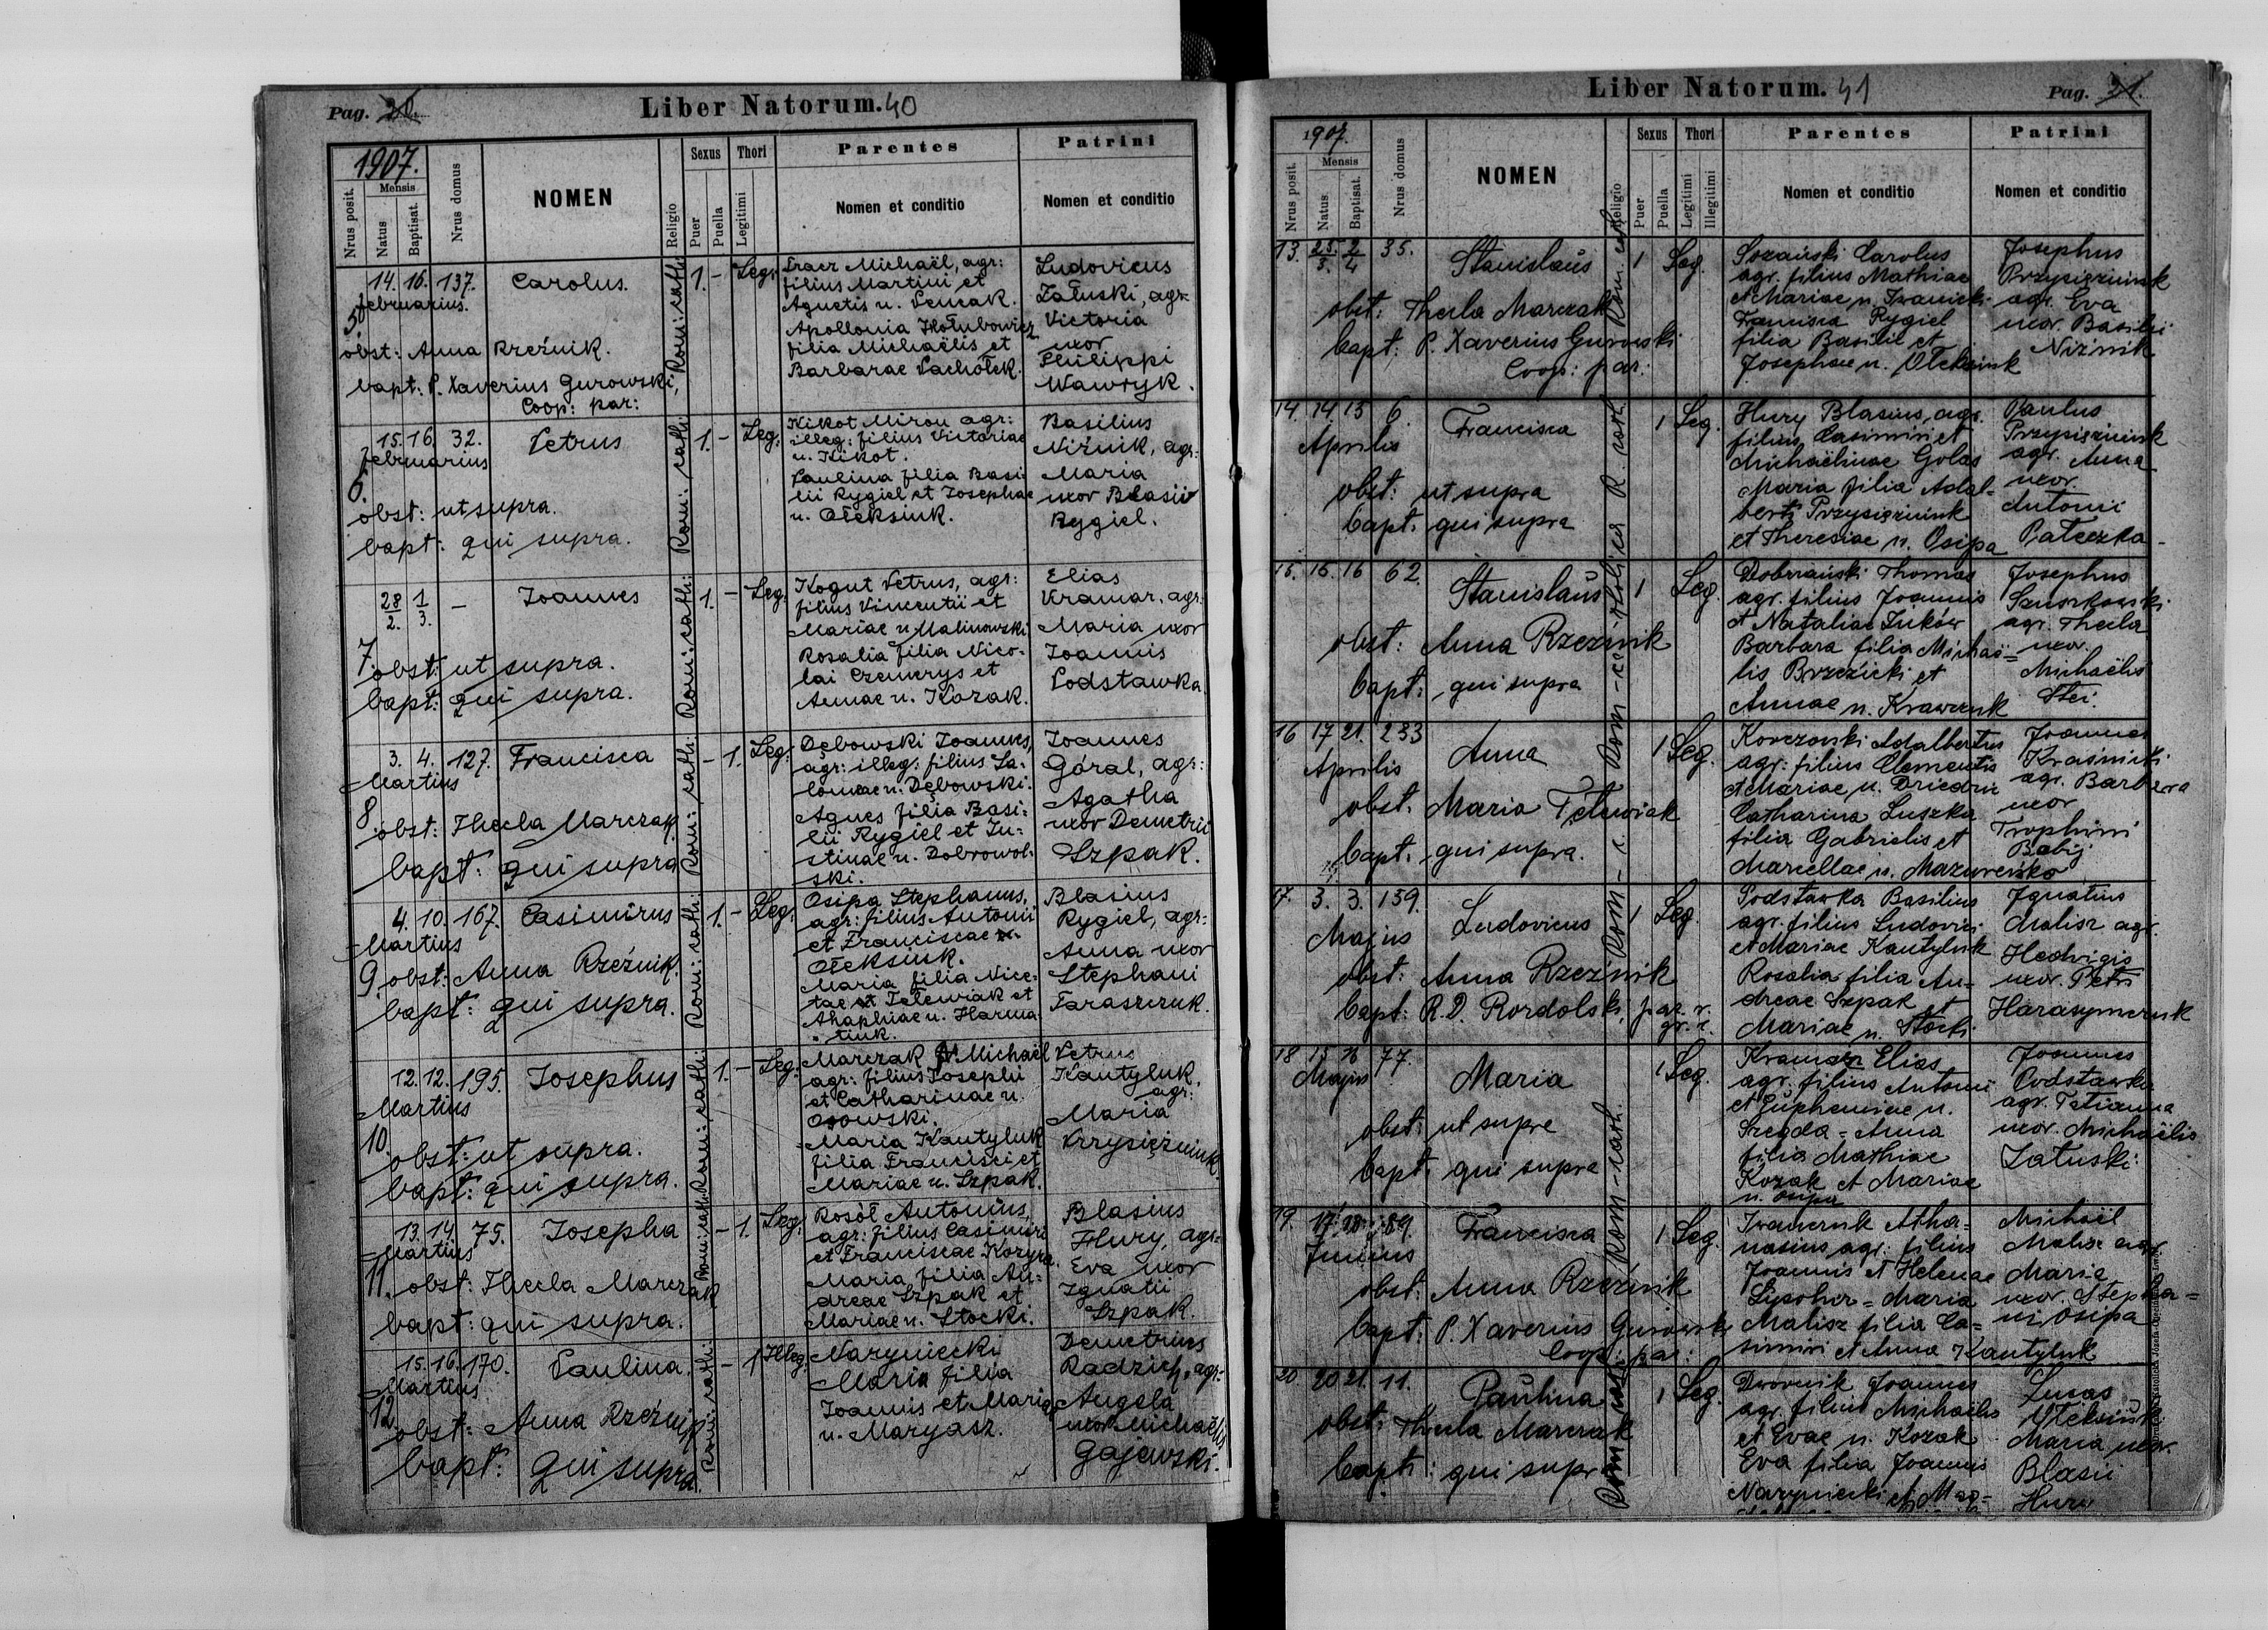 Pag. 20.
Liber Natorum. 40
1907.
Nrus posit.
Mensis
Natus
Baptisat.
Nrus domus
NOMEN
Religio
Sexus
Puer
Puella
Thori
Legitimi
Parentes
Nomen et conditio
Patrini
Nomen et conditio
5.
14. 16. 137. Carolus. Rom: cath: 1. - Leg:
februarius.
obst: Anna Rzeźnik.
bapt: P. Xaverius Gurowski,
Coop: par:
Michaël, agr:
filius Martini et
Agnetis n. Pencak.
Apollonia Hołubowicz
filia Michaëlis et
Barbarae Pachołek.
Ludovicus
Załuski, agr:
Victoria
uxor
Philippi
Wawryk.
6.
15. 16. 32. Petrus Rom: cath: 1. - Leg:
februarius
obst: ut supra.
bapt: qui supra.
Kikot Miron agr:
illeg: filius Victoriae
n. Kikot.
Paulina filia Basi-
lii Rygiel et Josephae
n. Ołeksiuk.
Basilius
Niżnik, agr:
Maria
uxor Blasii
Rygiel.
7.
28/2. 1/3. - Joannes Rom: cath: 1. - Leg:
obst: ut supra.
bapt: qui supra.
Kogut Petrus, agr:
filius Vincentii et
Mariae n. Malinowski
Rosalia filia Nico-
lai Czemerys et
Annae n. Kozak.
Elias
Kramar, agr:
Maria uxor
Joannis
Podstawka.
8.
3. 4. 127. Francisca Rom: cath: - 1. Leg:
Martius
obst: Thecla Marczak
bapt: qui supra
Dębowski Joannes,
agr: illeg: filius Sa-
lomeae n. Dębowski.
Agnes filia Basi-
lii Rygiel et Ju-
stinae n. Dobrowol-
ski.
Joannes
Góral, agr:
Agatha
uxor Demetrii
Szpak.
9.
4. 10. 167. Casimirus Rom: cath: 1. - Leg:
Martius
obst: Anna Rzeźnik.
bapt: qui supra.
Osipa Stephanus,
agr: filius Antonii
et Franciscae n.
Ołeksiuk.
Maria filia Nice-
tae et Telewiak et
Ahaphiae n. Harma-
tiuk.
Blasius
Rygiel, agr:
Anna uxor
Stephani
Taraszczuk.
10.
12. 12. 195. Josephus Rom: cath: 1. - Leg:
Martius
obst: ut supra.
bapt: qui supra.
Marczak Michaël
agr: filius Josephi
et Catharinae n.
Osowski.
Maria Kantyluk
filia Francisci et
Mariae n. Szpak.
Petrus
Kantyluk,
agr:
Maria
Przysiężniuk.
11.
13. 14. 75. Josepha Rom: cath: - 1. Leg:
Martius
obst: Thecla Marczak
bapt: qui supra.
Rosół Antonius,
agr: filius Casimiri
et Franciscae Kozyra.
Maria filia An-
dreae Szpak et
Mariae n. Stocki.
Blasius
Hury, agr:
Eva uxor
Ignatii
Szpak.
12.
15. 16. 170. Paulina. Rom: cath: - 1 Illeg:
Martius
obst: Anna Rzeźnik
bapt: qui supra.
Naryniecki
Maria filia
Joannis et Mariae
n. Maryasz.
Demetrius
Radzich, agr:
Angela
uxor Michaëlis
Gajewski.
Liber Natorum. 41
Pag. 21.
1907.
Nrus posit.
Mensis
Natus
Baptisat.
Nrus domus
NOMEN
Religio
Sexus
Puer
Puella
Thori
Legitimi
Illegitimi
Parentes
Nomen et conditio
Patrini
Nomen et conditio
13. 25/3. 2/4 35. Stanislaus Rom. cath 1 Leg.
obst: Thecla Marczak
bapt: P. Xaverius Gurowski
Coop: par:
Sozański Carolus
agr. filius Mathiae
et Mariae n. Iwanicki
Francisca Rygiel
filia Basilii et
Josephae n. Oleksiuk
Josephus
Przysiężniuk
agr. Eva
uxor. Basilii
Niżnik
14. 14 15 6. Francisca R. cath. 1 Leg.
Aprilis
obst: ut supra
bapt. qui supra
Hury Blasius, agr.
filius Casimiri et
Michaëlinae Golas
Maria filia Adal-
berti Przysiężniuk
et Theresiae n. Osipa
Paulus
Przysiężniuk
agr. Anna
uxor.
Antonii
Pałeczka
15. 15. 16 62. Stanislaus 1 Leg.
obst: Anna Rzeźnik
bapt: qui supra
Dobrzański Thomas
agr. filius Joannis
et Nataliae Żuków
Barbara filia Michaë-
lis Brzezicki et
Annae n. Krawczuk
Josephus
Szuszkowski
agr. Thecla
uxor.
Michaëlis
Stei.
16 17 21. 233 Anna 1 Leg.
Aprilis
obst. Maria Telewiak
bapt. qui supra.
Korczowski Adalbertus
agr: filius Clementis
et Mariae, n. Driedric
Catharina Luszka
filia Gabrielis et
Marcellae n. Mazureńko
Joannes
Kraśnicki
agr. Barbara
uxor
Trophimi
Babij
17. 3. 3. 159. Ludovicus 1 Leg.
Majus
obst: Anna Rzeźnik
bapt: R. D. Rordolski, par. r.
gr. c.
Podstawka Basilius
agr. filius Ludovici
et Mariae Kantyluk
Rosalia filia An-
dreae Szpak et
Mariae n. Stocki
Ignatius
Malisz agr.
Hedvigis
uxor. Petri
Harasymczuk
18 15 16 77. Maria Rom-cath. 1 Leg.
Majus
obst: ut supra
bapt. qui supra
Kramarz Elias
agr. filius Antonii
et Eupheniae n.
Szegda = Anna
filia Mathiae
Kozak et Mariae
n. Osipa
Joannes
Podstawka
agr. Tetianna
uxor. Michaëlis
Załuski.
19. 17. 18. 89. Francisca Rom-cath 1 Leg.
Junius
obst: Anna Rzeźnik
bapt: P. Xaverius Gurowski
Coop: par:
Iwanczuk Atha-
nasius agr: filius
Joannis et Helenae
= Maria
Malisz filia Ca-
simiri et Anna Kantyluk
Michaël
Malisz agr
Maria
uxor. Stepha-
ni Osipa
20 20 21. 11. Paulina Rom cath 1 Leg.
obst: Thecla Marczak
bapt: qui supra
Dwornik Joannes
agr. filius Michaëlis
et Evae n. Kozak
Eva filia Joannis
Naryniecki et Mag-
Lucas
Oleksiuk
Maria uxor.
Blasii
Hury